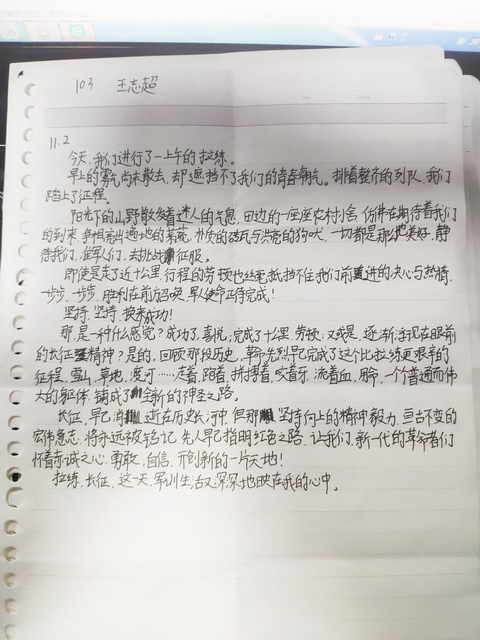 103 王志超
11.2
今天,我们进行了一上午的拉练。
早上的雾气尚未散去,却遮挡不了我们的青春朝气。排着整齐的列队,我们
踏上了征程。
阳光下的山野散发着迷人的气息,田边的一座座农村小舍,仿佛在期待着我们
的到来,争相露出遍地的菜蔬,朴质的砖瓦与洪亮的狗吠,一切都是那么地美好,静
待我们,军人们,去挑战征服。
即便是走了近十公里,行程的劳顿也丝毫抵挡不住我们前进的决心与热情,
一步步,一步步,胜利在前方召唤,军人使命正待完成!
坚持,坚持,换来成功!
那是一种什么感觉?成功了,喜悦;完成了十公里,劳顿;又或是,逐渐浮现在眼前
的长征精神?是的,回顾那段历史,革命先烈早已完成了这个比拉练更艰辛的
征程,雪山,草地,渡河……走着,跑着,拼搏着,咬着牙,流着血,用命,一个个普通而伟
大的躯体,铺成了全新的神圣之路。
长征,早已消逝在历史长河中,但那坚持向上的精神毅力,亘古不变的
宏伟意志,将永远被铭记,先人早已指明红色之路,让我们,新一代的革命者们
怀着赤诚之心,勇敢,自信,开创新的一片天地!
拉练,长征,这一天,军训生活又深深地映在我的心中。